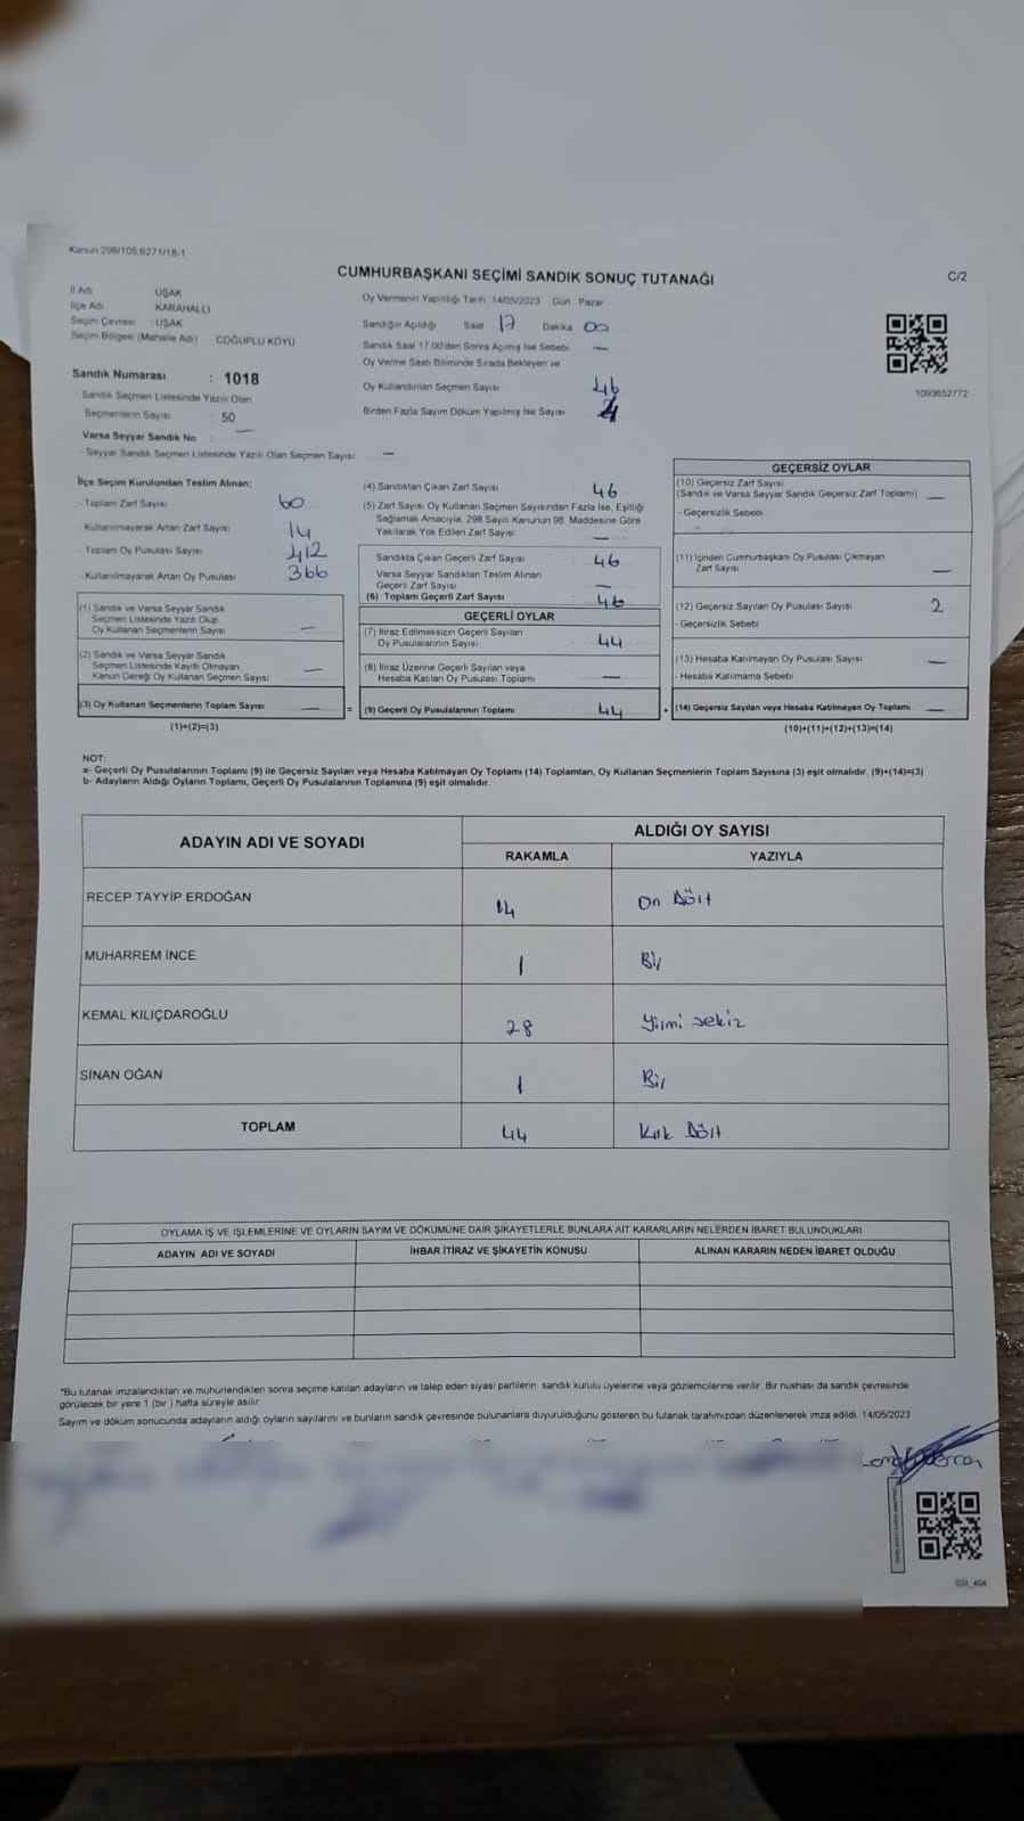 Kanun 298/105 6271/18-1
CUMHURBAŞKANI SEÇİMİ SANDIK SONUÇ TUTANAĞI
C/2
İl Adı UŞAK
İlçe Adı KARAHALLI
Seçim Çevresi : UŞAK
Seçim Bölgesi (Mahalle Adı) COĞUPLU KÖYÜ
Sandık Numarası : 1018
Sandık Seçmen Listesinde Yazılı Olan
Seçmenlerin Sayısı 50
Varsa Seyyar Sandık No —
- Seyyar Sandık Seçmen Listesinde Yazılı Olan Seçmen Sayısı —
Oy Vermenin Yapıldığı Tarih 14/05/2023 Gün Pazar
Sandığın Açıldığı Saat 17 Dakika 00
Sandık Saat 17.00'den Sonra Açılmış İse Sebebi —
Oy Verme Saati Bitiminde Sırada Bekleyen ve
Oy Kullandırılan Seçmen Sayısı 46
Birden Fazla Sayım Döküm Yapılmış İse Sayısı
1093652772
İlçe Seçim Kurulundan Teslim Alınan:
- Toplam Zarf Sayısı 60
- Kullanılmayarak Artan Zarf Sayısı 14
- Toplam Oy Pusulası Sayısı 412
- Kullanılmayarak Artan Oy Pusulası 366
(1) Sandık ve Varsa Seyyar Sandık
Seçmen Listesinde Yazılı Olup
Oy Kullanan Seçmenlerin Sayısı —
(2) Sandık ve Varsa Seyyar Sandık
Seçmen Listesinde Kayıtlı Olmayan
Kanun Gereği Oy Kullanan Seçmen Sayısı —
(3) Oy Kullanan Seçmenlerin Toplam Sayısı —
(1)+(2)=(3)
=
(4) Sandıktan Çıkan Zarf Sayısı 46
(5) Zarf Sayısı Oy Kullanan Seçmen Sayısından Fazla İse, Eşitliği
Sağlamak Amacıyla, 298 Sayılı Kanunun 98. Maddesine Göre
Yakılarak Yok Edilen Zarf Sayısı —
Sandıkta Çıkan Geçerli Zarf Sayısı 46
Varsa Seyyar Sandıktan Teslim Alınan
Geçerli Zarf Sayısı —
(6) Toplam Geçerli Zarf Sayısı 46
GEÇERLİ OYLAR
(7) İtiraz Edilmeksizin Geçerli Sayılan
Oy Pusulalarının Sayısı 44
(8) İtiraz Üzerine Geçerli Sayılan veya
Hesaba Katılan Oy Pusulası Toplamı —
(9) Geçerli Oy Pusulalarının Toplamı 44
+
GEÇERSİZ OYLAR
(10) Geçersiz Zarf Sayısı
(Sandık ve Varsa Seyyar Sandık Geçersiz Zarf Toplamı) —
- Geçersizlik Sebebi
(11) İçinden Cumhurbaşkanı Oy Pusulası Çıkmayan
Zarf Sayısı —
(12) Geçersiz Sayılan Oy Pusulası Sayısı 2
- Geçersizlik Sebebi
(13) Hesaba Katılmayan Oy Pusulası Sayısı —
- Hesaba Katılmama Sebebi
(14) Geçersiz Sayılan veya Hesaba Katılmayan Oy Toplamı —
(10)+(11)+(12)+(13)=(14)
NOT:
a- Geçerli Oy Pusulalarının Toplamı (9) ile Geçersiz Sayılan veya Hesaba Katılmayan Oy Toplamı (14) Toplamları, Oy Kullanan Seçmenlerin Toplam Sayısına (3) eşit olmalıdır. (9)+(14)=(3)
b- Adayların Aldığı Oyların Toplamı, Geçerli Oy Pusulalarının Toplamına (9) eşit olmalıdır.
ADAYIN ADI VE SOYADI
ALDIĞI OY SAYISI
RAKAMLA YAZIYLA
RECEP TAYYİP ERDOĞAN 14 On Dört
MUHARREM İNCE 1 Bir
KEMAL KILIÇDAROĞLU 28 Yirmi sekiz
SİNAN OĞAN 1 Bir
TOPLAM 44 Kırk Dört
OYLAMA İŞ VE İŞLEMLERİNE VE OYLARIN SAYIM VE DÖKÜMÜNE DAİR ŞİKAYETLERLE BUNLARA AİT KARARLARIN NELERDEN İBARET BULUNDUKLARI
ADAYIN ADI VE SOYADI İHBAR İTİRAZ VE ŞİKAYETİN KONUSU ALINAN KARARIN NEDEN İBARET OLDUĞU
*Bu tutanak imzalandıktan ve mühürlendikten sonra seçime katılan adayların ve talep eden siyasi partilerin sandık kurulu üyelerine veya gözlemcilerine verilir. Bir nüshası da sandık çevresinde
görülecek bir yere 1 (bir) hafta süreyle asılır.
Sayım ve döküm sonucunda adayların aldığı oyların sayılarını ve bunların sandık çevresinde bulunanlara duyurulduğunu gösteren bu tutanak tarafımızdan düzenlenerek imza edildi. 14/05/2023